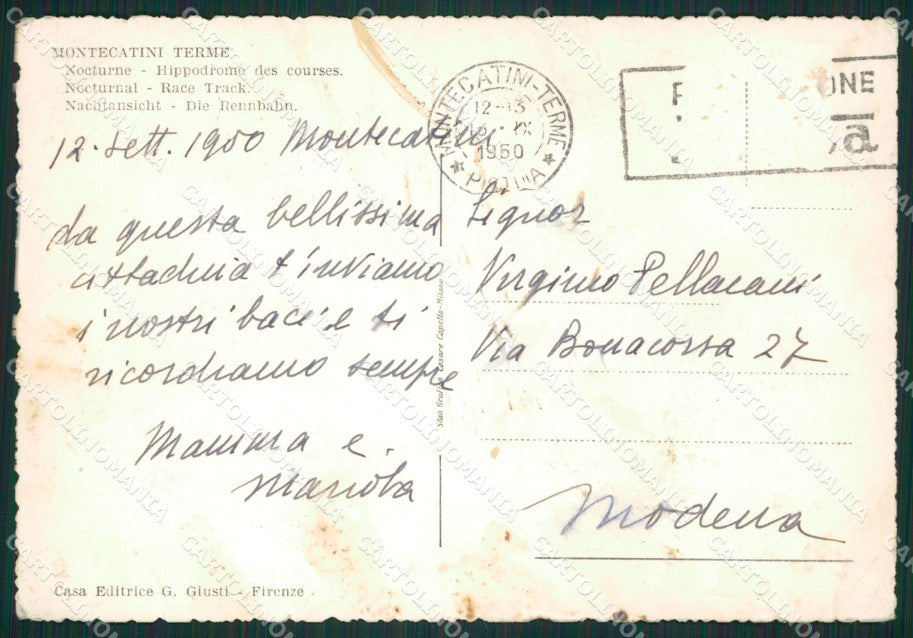 MONTECATINI TERME
Nocturne - Hippodrome des courses.
Nocturnal - Race Track.
Nachtansicht - Die Rennbahn.
12. Sett. 1950 Montecatini
da questa bellissima
cittadina t'inviamo
i nostri baci e ti
ricordiamo sempre
Mamma e
MONTECATINI-TERME
12-13
IX
1950
PISTOIA
ONE
a
Signor
Virginio Pellacani
Via Bonacossa 27
Modena
Casa Editrice G. Giusti - Firenze
CARTOLINOMANIA